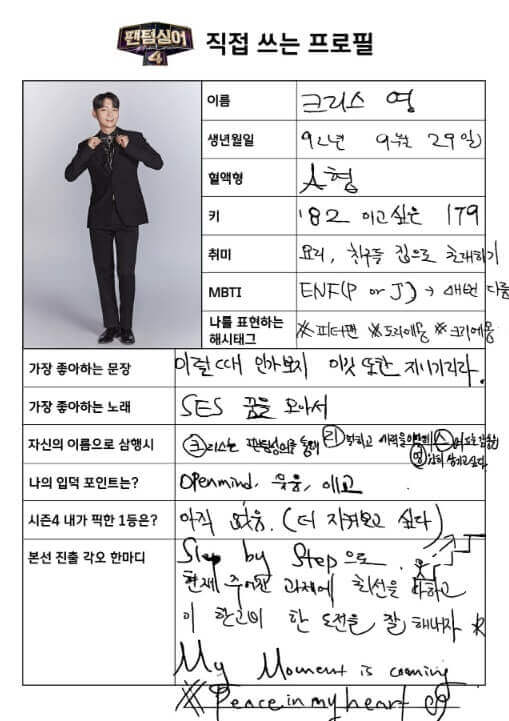 팬텀싱어
4
직접 쓰는 프로필
이름 크리스 영
생년월일 92년 9월 29일
혈액형 A형
키 182 이고싶은 179
취미 요리, 친구들 집으로 초대하기
MBTI ENF(P or J) → 매번 다름
나를 표현하는
해시태그 ※피터팬 ※도라에몽 ※크리에몽
가장 좋아하는 문장 이럴 때 인가보지 이것 또한 지나가리라.
가장 좋아하는 노래 SES 꿈을 모아서
자신의 이름으로 삼행시 크리스는 팬텀싱어를 통해 리
나의 입덕 포인트는? Openmind, 웃음, 애교
시즌4 내가 픽한 1등은? 아직 없음. (더 지켜보고 싶다)
본선 진출 각오 한마디 Step by Step으로
현재 주어진 과제에 최선을 다하고
이 한고비 한 도전을 잘 해내자
My Moment is coming
※ Peace in my heart